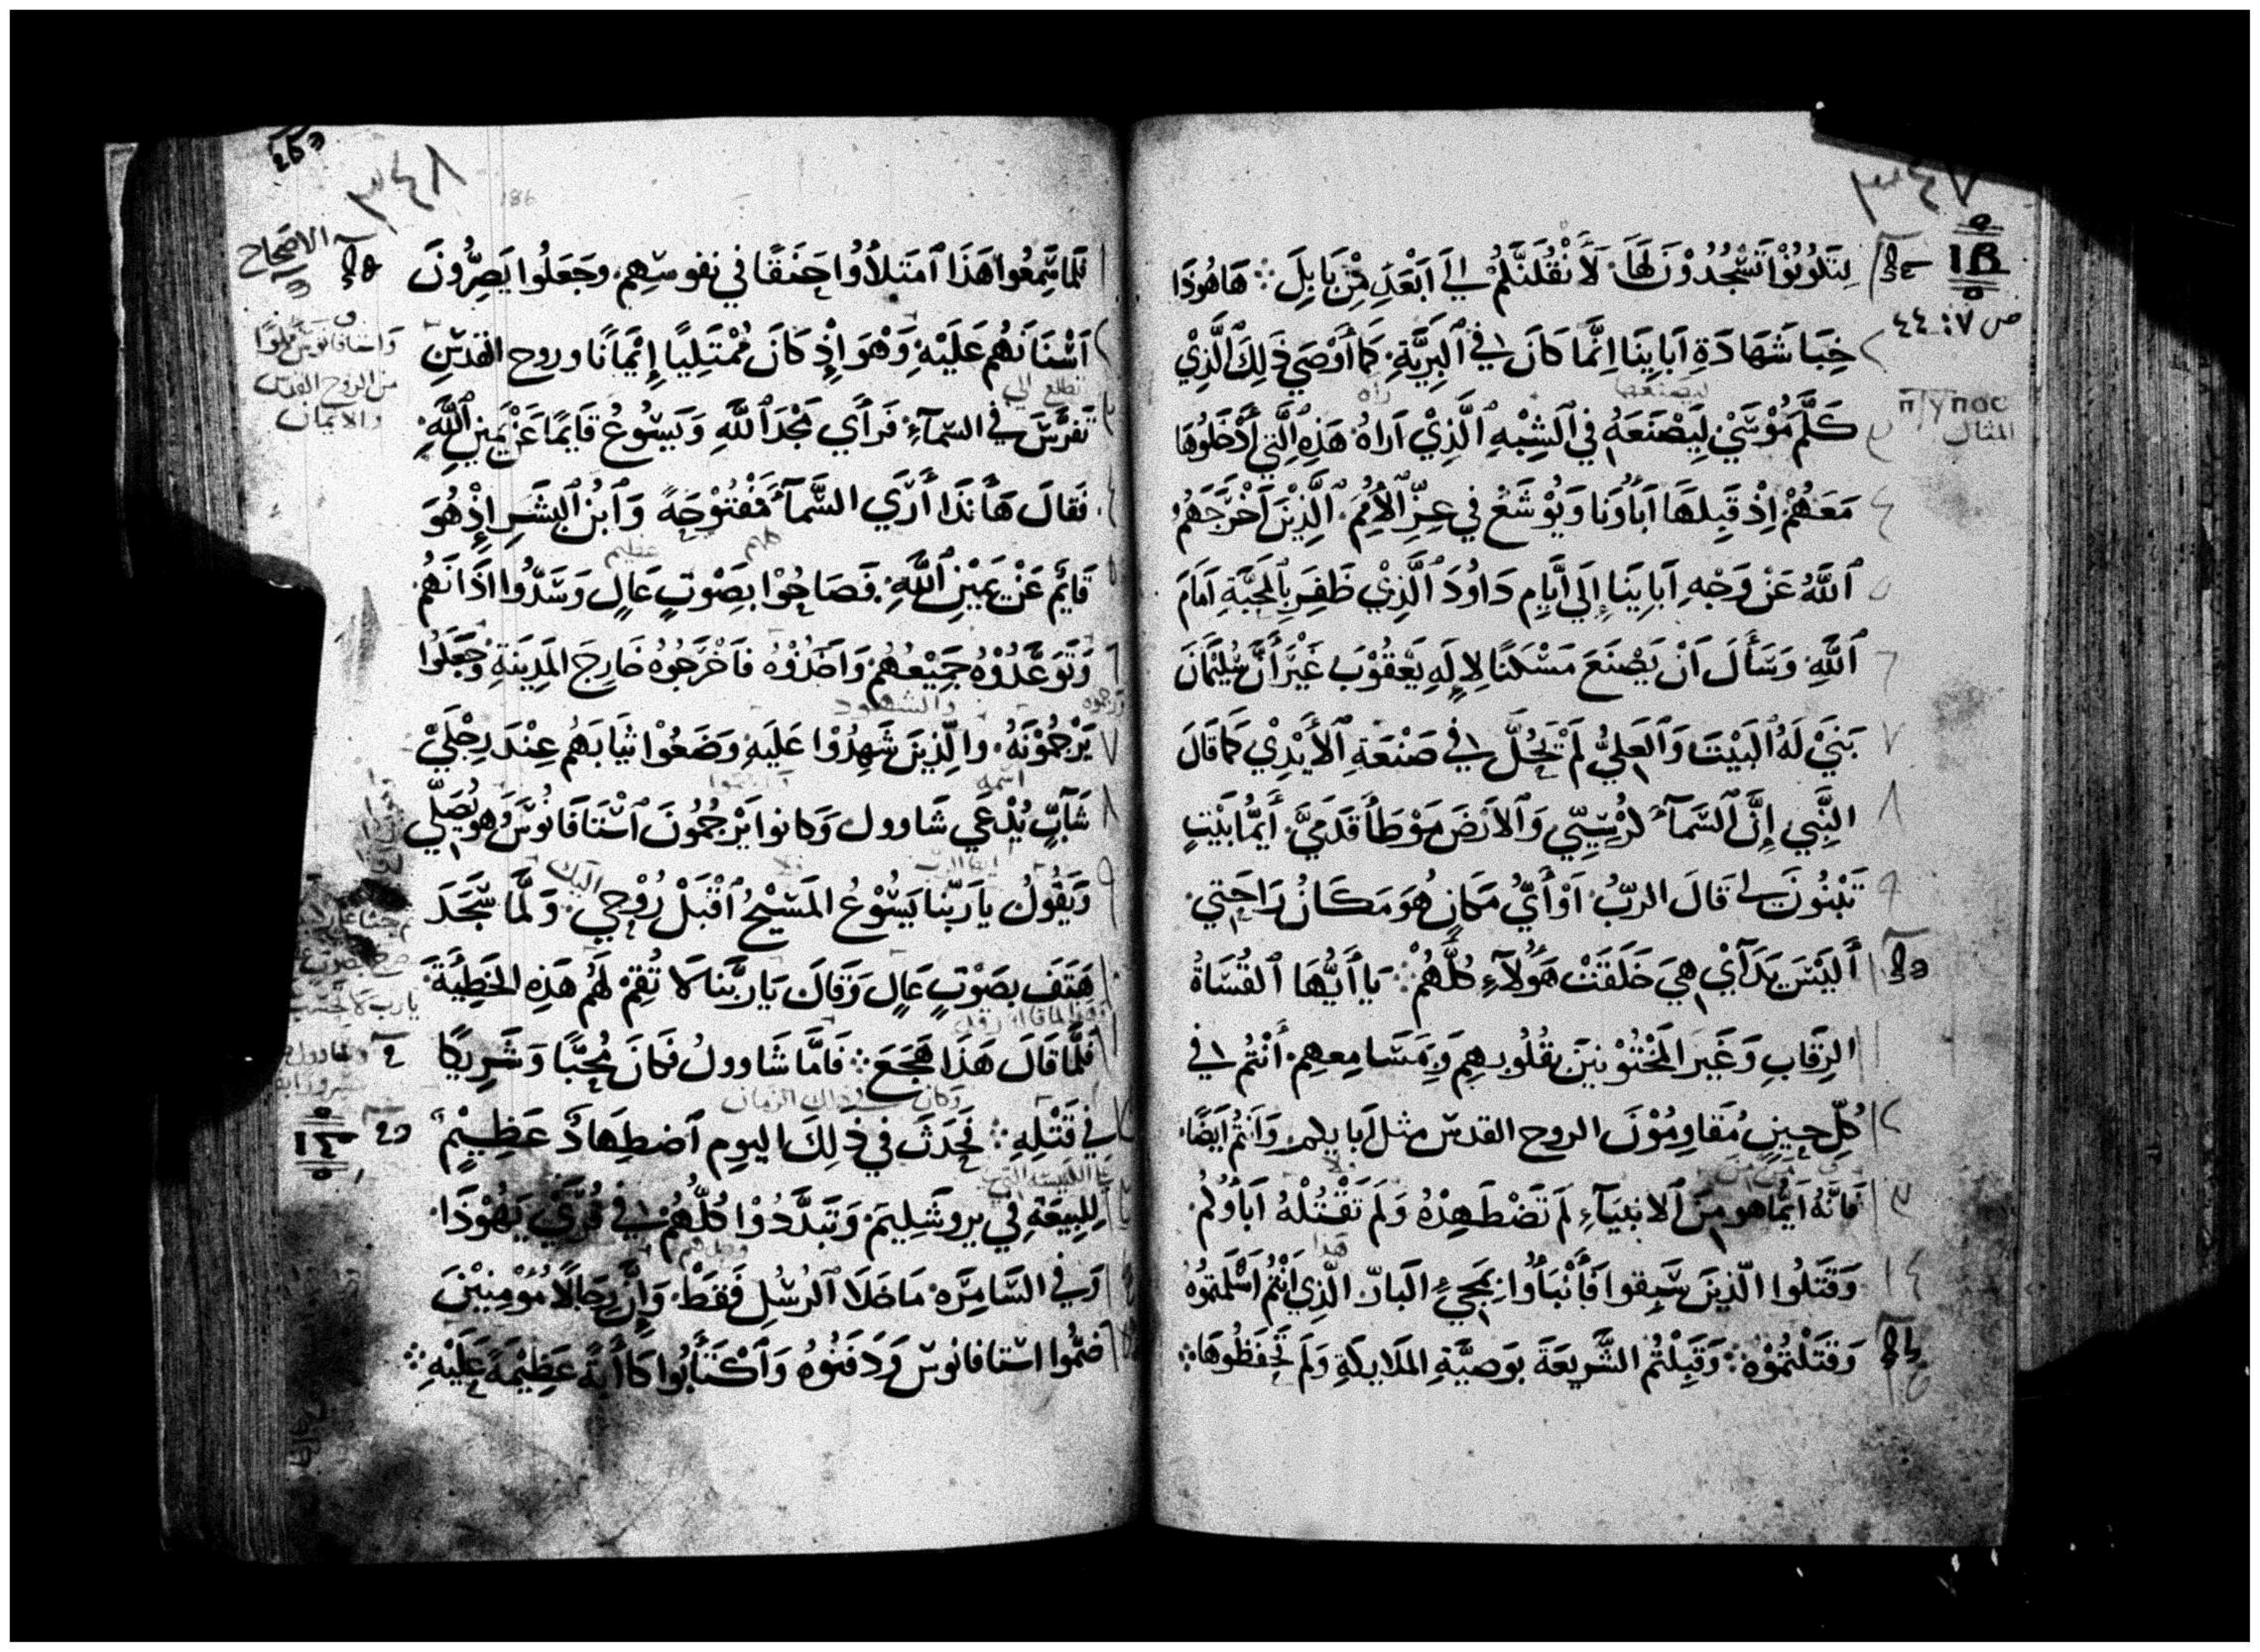 ٣٤٧
ΙΒ
ص ٧: ٤٤
لتكونوا تسجدون لها. لأنقلنكم الي ابعد من بابل ܀ هاهوذا
خبا شهادة ابآينا انما كان في البرية. كما أوصي ذلك الذي
ليصنعها
راه
πτγποс
المثال
كلم موسي ليصنعه في الشبه الذي اراه هذه التي أدخلوها
معهم اذ قبلها اباونا ويوشع في عز الأمم. الذين اخرجهم
الله عن وجه اباينا إلي أيام داود الذي ظفر بالمحبة امام
الله. وسأل ان يصنع مسكنا لإله يعقوب غير أن سليمان
بني له البيت والعلي لم يحل في صنعة الأيدي كما قال
النبي إن السمآ كرسيي والارض موطأ قدمي. أيما بيت
تبنون لي قال الرب. او أي مكان هو مكان راحتي.
أليس يدآي هي خلقت هولآء كلهم ܀ يا أيها القساة
الرقاب وغير المختونين بقلوبهم ومسامعهم. أنتم في
كل حين مقاومون الروح القدس مثل ابايكم وانتم ايضا.
فانه ايما هو من الانبيآء لم تضطهده ولم تقتله اباوكم.
هذا
وقتلوا الذين سبقوا فأنبأوا بمجيء البار. الذي انتم اسلمتموه
وقتلتموه ܀ وقبلتم الشريعة بوصية الملايكة ولم تحفظوها ܀
٣٤٨
186
الاصحاح
فلما سمعوا هذا امتلأوا حنقا في نفوسهم. وجعلوا يصرون
واستافانوس مملوا
من الروح القدس
والايمان
اسنانهم عليه. وهو إذ كان ممتليا إيمانا وروح القدس
تطلع الي
تفرس في السمآء. فرأي مجد الله ويسوع قايما عن يمين الله.
فقال هأنذا أري السمآ مفتوحة وابن البشر إذ هو
عظيم
قايم عن يمين الله. فصاحوا بصوت عال وسدوا اذانهم.
وتوعدوه جميعهم واخذوه فاخرجوه خارج المدينة وجعلوا
ورجموه
والشهود
يرجمونه. والذين شهدوا عليه وضعوا ثيابهم عند رجلي
اسمه
شآب يدعي شاوول وكانوا يرجمون استافانوس وهو يصلي
اليك
ويقول يا ربنا يسوع المسيح اقبل روحي. ولما سجد
هتف بصوت عال وقال يا ربنا لا تقم لهم هذه الخطيئة.
يارب لا تحسب
فلما قال هذا هجع ܀ فاما شاوول فكان محبا وشريكا
وكان في ذاك الزمان
في قتله ܀ فحدث في ذلك اليوم اضطهاد عظيم
ΙΓ
للبيعة في يروشليم وتبددوا كلهم في قري يهوذا.
وفي السامره ما خلا الرسل فقط. وإن رجالا مومنين
ضموا استافانوس ودفنوه واكتأبوا كأابة عظيمة عليه ܀